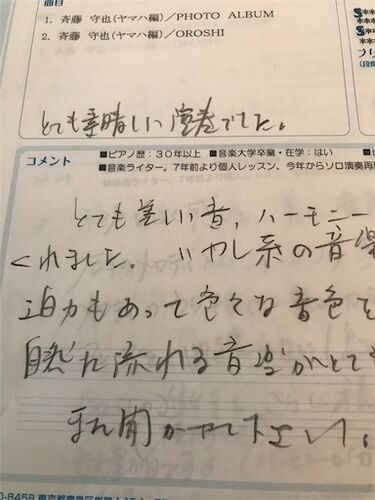 曲目
1. 斉藤 守也(ヤマハ編)／PHOTO ALBUM
2. 斉藤 守也(ヤマハ編)／OROSHI
とても素晴しい演奏でした。
コメント
■ピアノ歴：30年以上 ■音楽大学卒業・在学：はい
■音楽ライター。7年前より個人レッスン、今年からソロ演奏再
とても美しい音、ハーモニー
くれました。いやし系の音楽
迫力もあって色々な音色を
自然に流れる音楽がとても
また聞かせて下さい。